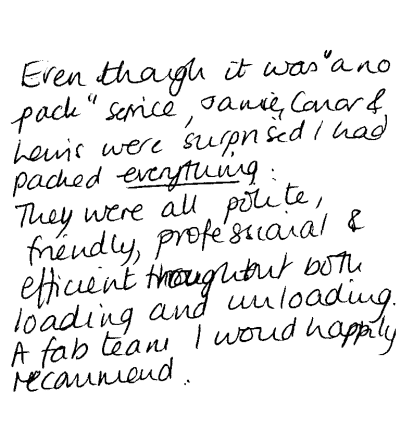 Even though it was "a no
pack" service, Jamie, Conor &
Lewis were surprised I had
packed everything.
They were all polite,
friendly, professional &
efficient throughout both
loading and unloading.
A fab team I would happily
recommend.